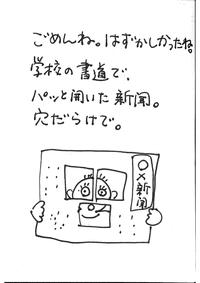 ごめんね。はずかしかったね。
学校の書道で、
パッと開いた新聞。
穴だらけで。
○×新聞